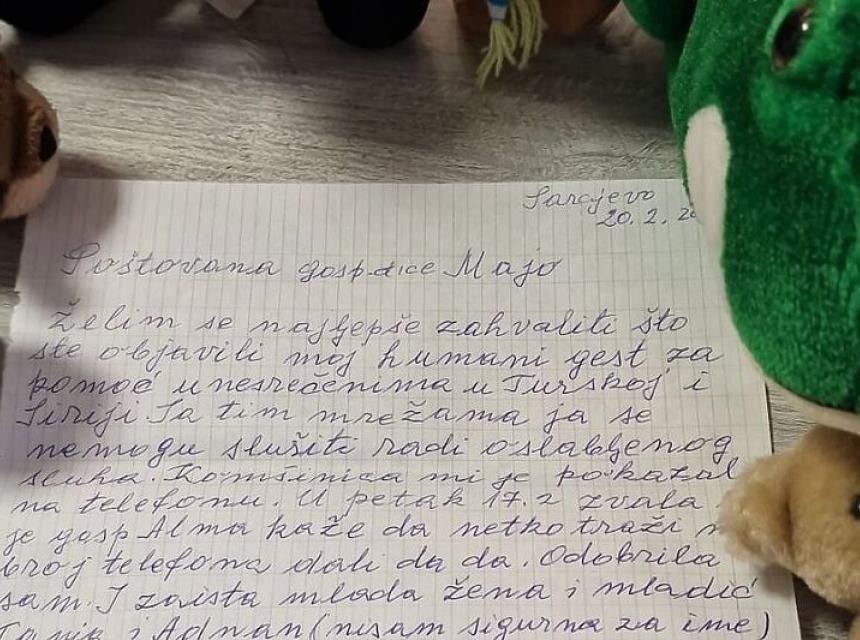 Sarajevo
20. 2. 20
Poštovana gospođice Majo
Želim se najljepše zahvaliti što
ste objavili moj humani gest za
pomoć unesrečenima u Turskoj i
Siriji. Sa tim mrežama ja se
nemogu služiti radi oslabljenog
sluha. Komšinica mi je pokazal
na telefonu. U petak 17.2 zvala
je gosp Alma kaže da netko traži
broj telefona dali da da. Odobrila
sam. I zaista mlada žena i mladić
i Adnan (nisam sigurna za ime)